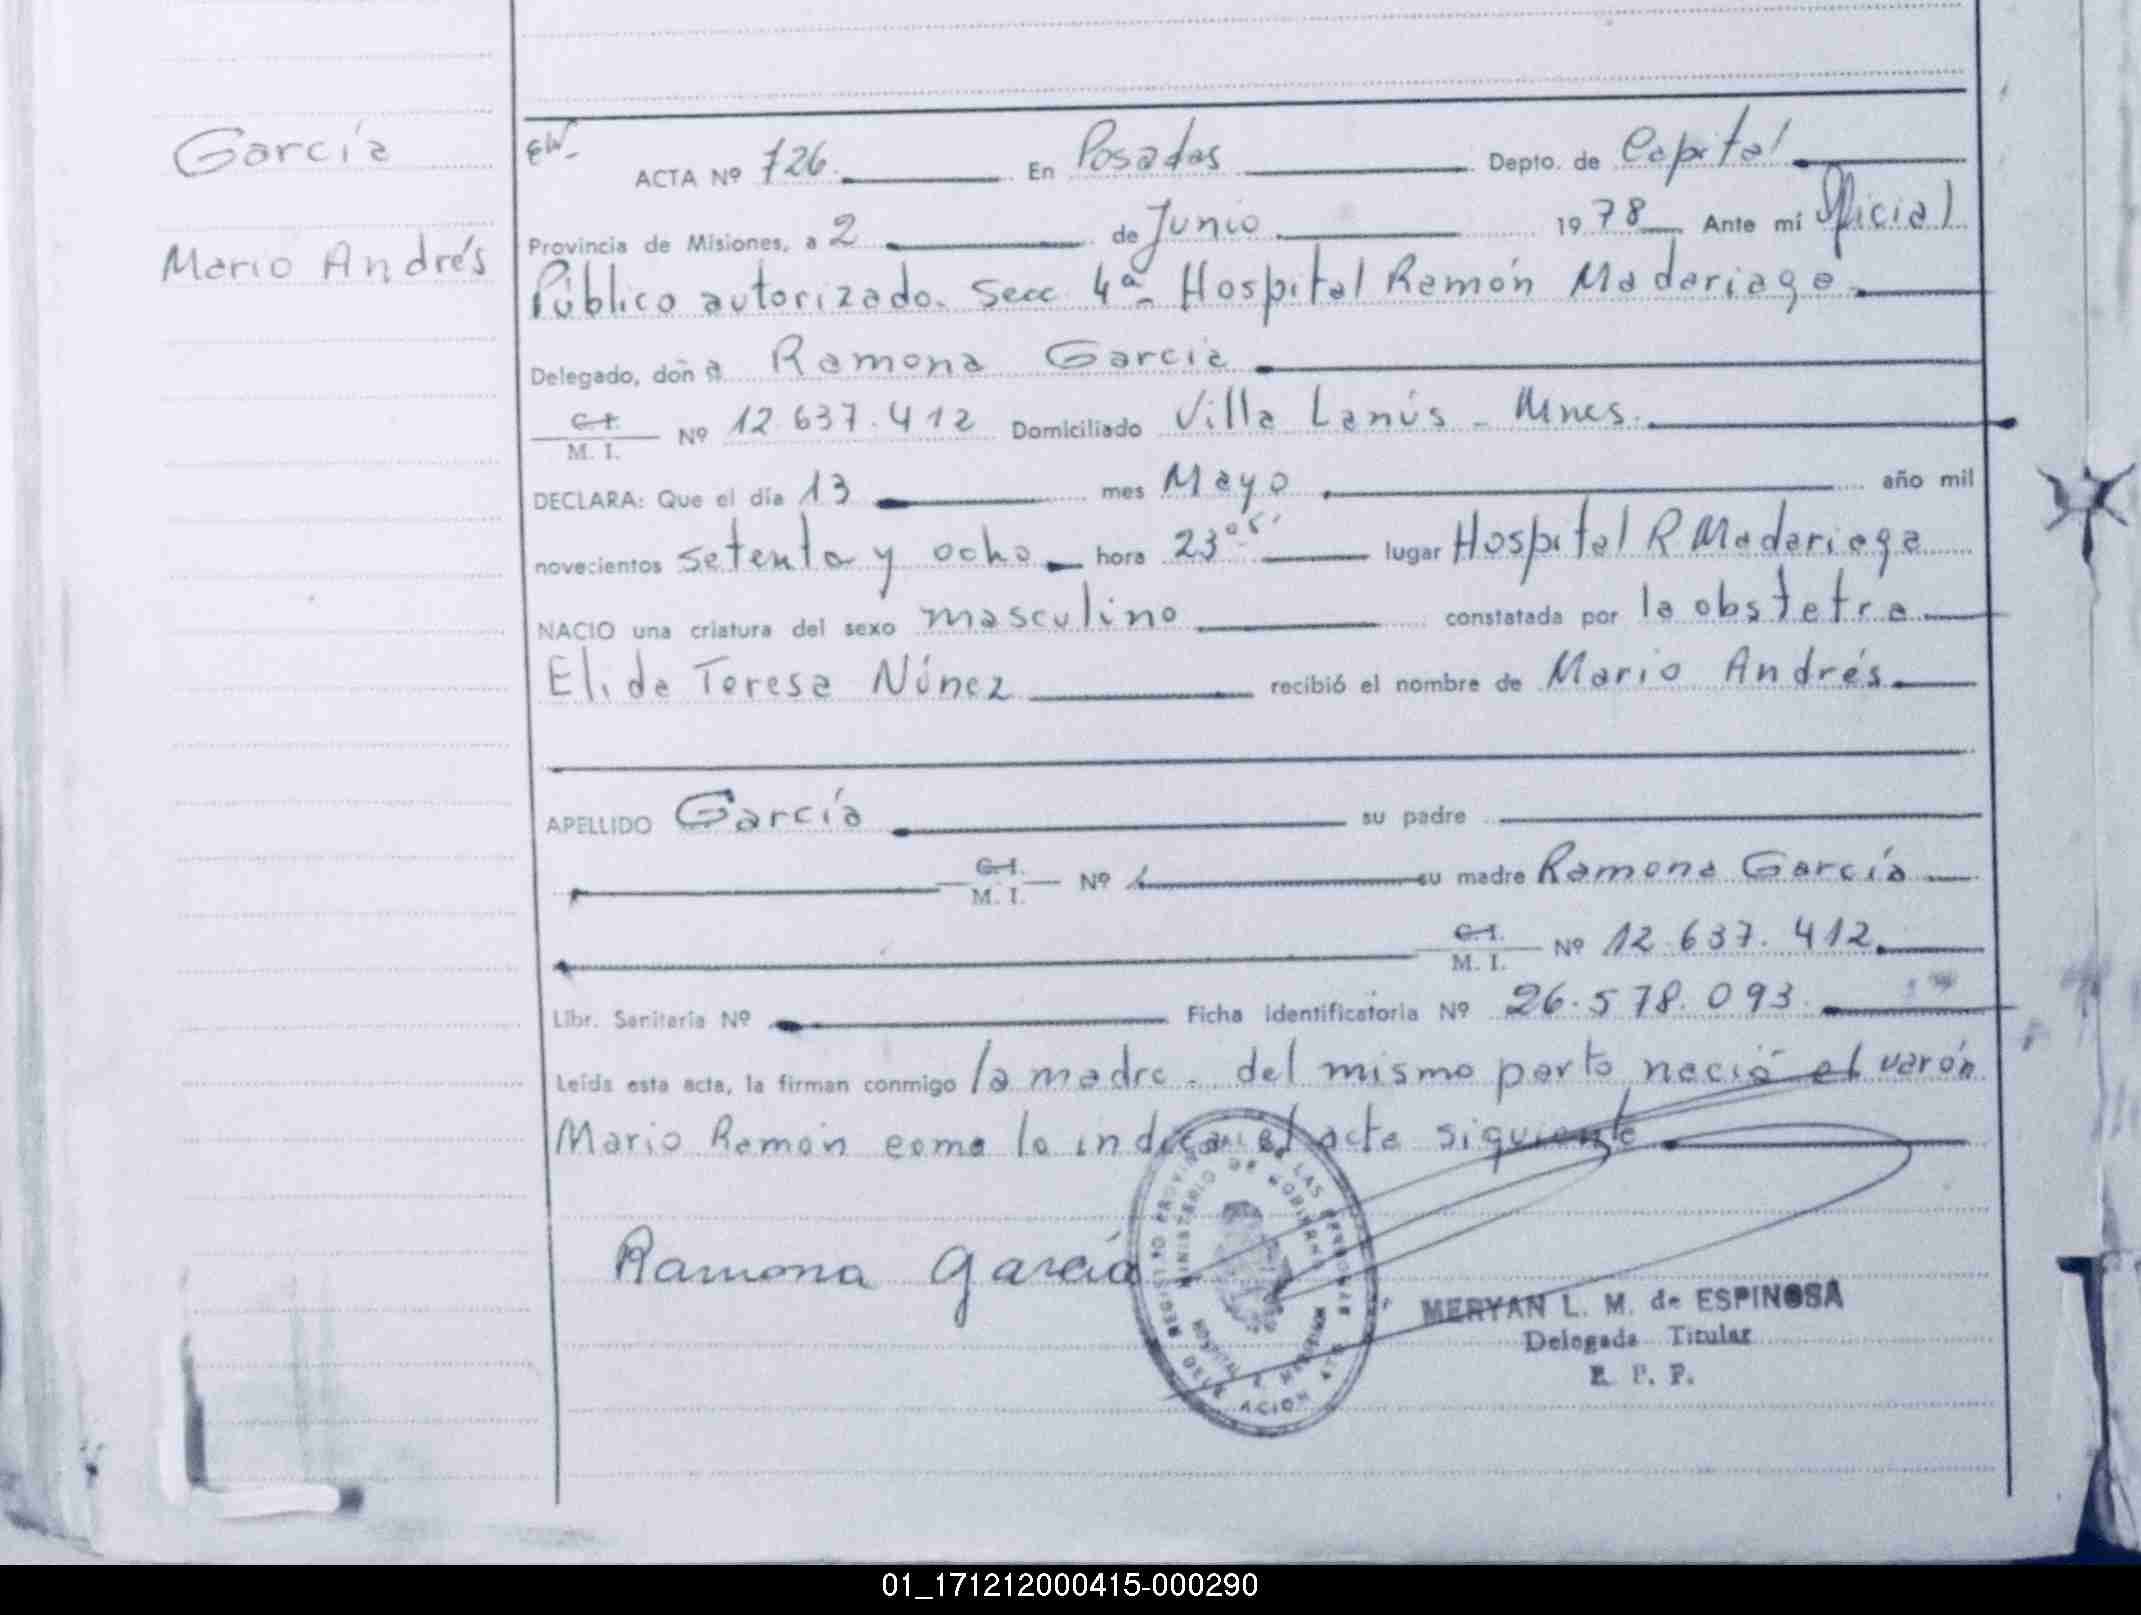 García
Mario Andrés
EW-
ACTA Nº 726. En Posadas Depto. de Capital
Provincia de Misiones, a 2 de Junio 1978 Ante mí Oficial
Público autorizado. Secc 4ª. Hospital Ramón Madariaga
Delegado, doña Ramona García
C. I.
M. I. Nº 12.637.412 Domiciliado Villa Lanús - Mnes.
DECLARA: Que el día 13 mes Mayo año mil
novecientos setenta y ocho hora 23 05' lugar Hospital R Madariaga
NACIO una criatura del sexo masculino constatada por la obstetra
Elida Teresa Núnez recibió el nombre de Mario Andrés
APELLIDO García su padre
C. I.
M. I. Nº su madre Ramona García
C. I.
M. I. Nº 12.637.412
Libr. Sanitaria Nº Ficha identificatoria Nº 26.578.093.
Leída esta acta, la firman conmigo la madre. del mismo parto nació el varón
Mario Ramón como lo indica el acta siguiente
Ramona García
MERYAN L. M. de ESPINOSA
Delegada Titular
R. P. P.
01_171212000415-000290